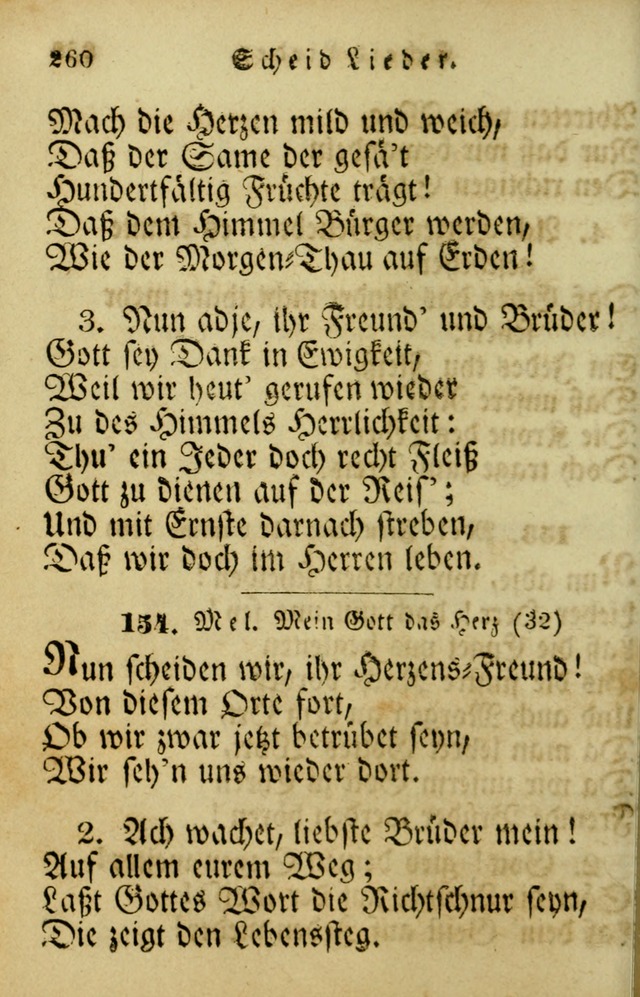 260 Scheid Lieder.
Mach die Herzen mild und weich,
Daß der Same der gesä't
Hundertfältig Früchte trägt!
Daß dem Himmel Bürger werden,
Wie der Morgen⸗Thau auf Erden!
3. Nun adje, ihr Freund' und Brüder!
Gott sey Dank in Ewigkeit,
Weil wir heut' gerufen wieder
Zu des Himmels Herrlichkeit:
Thu' ein Jeder doch recht Fleiß
Gott zu dienen auf der Reis';
Und mit Ernste darnach streben,
Daß wir doch im Herren leben.
154. Mel. Mein Gott das Herz (32)
Nun scheiden wir, ihr Herzens⸗Freund!
Von diesem Orte fort,
Ob wir zwar jetzt betrübet seyn,
Wir seh'n uns wieder dort.
2. Ach wachet, liebste Brüder mein!
Auf allem eurem Weg;
Laßt Gottes Wort die Richtschnur seyn,
Die zeigt den Lebenssteg.